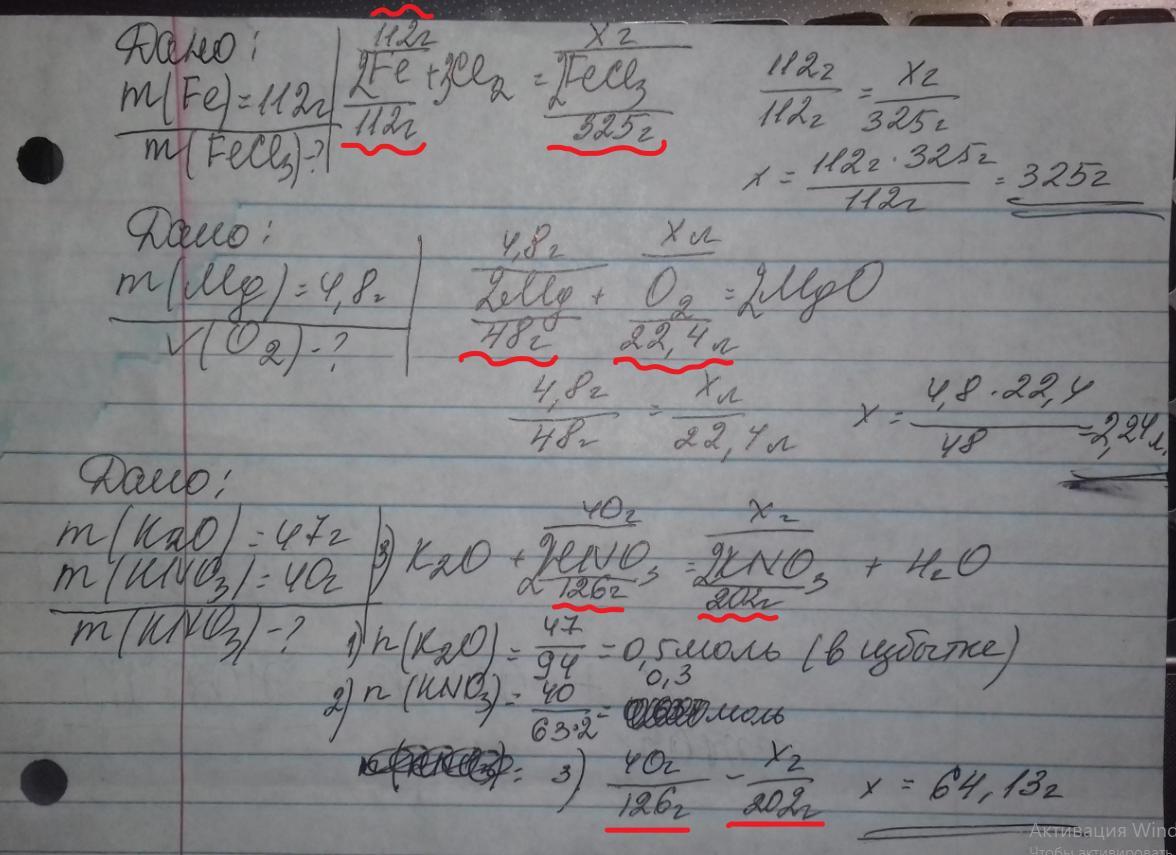 Дано:
m(Fe)=112г
m(FeCl3)-?
112г Xг
2Fe + 3Cl2 = 2FeCl3
112г 325г
112г/112г = Xг/325г
x = 112г·325г/112г = 325г
Дано:
m(Mg)=4,8г
V(O2)-?
4,8г Xл
2Mg + O2 = 2MgO
48г 22,4л
4,8г/48г = Xл/22,4л
x = 4,8·22,4/48 = 2,24л
Дано:
m(K2O)=47г
m(HNO3)=40г
m(KNO3)-?
40г Xг
3) K2O + 2HNO3 = 2KNO3 + H2O
126г 202г
1) n(K2O) = 47/94 = 0,5моль (в избытке)
0,3
2) n(HNO3) = 40/63·2 = моль
= 3) 40г/126г - Xг/202г x = 64,13г
Активация Wind
Чтобы активировать